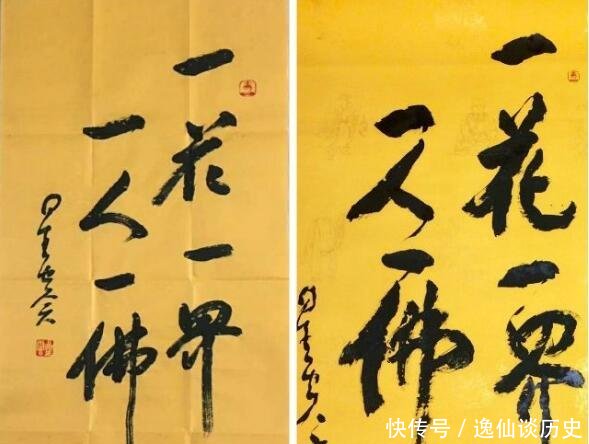 一花一界
一人一佛
一花一界
一人一佛
快传号/逸仙谈历史